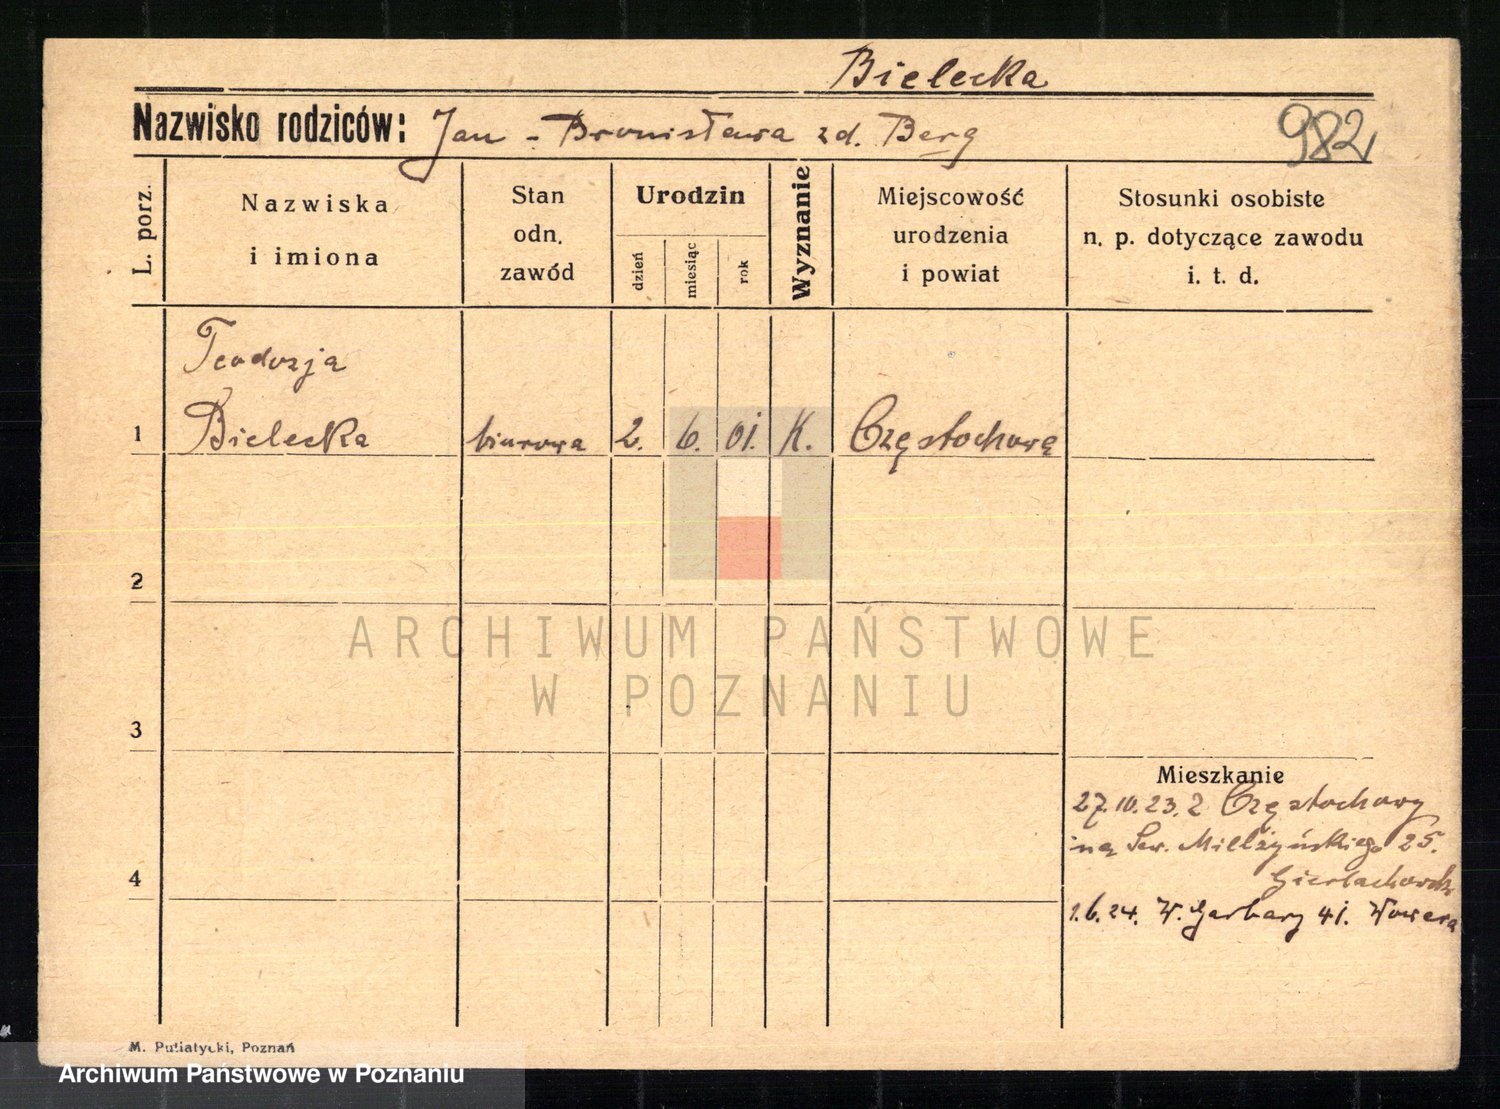 Bielecka
Nazwisko rodziców: Jan - Bronisława zd. Berg
982
L. porz.
Nazwiska
i imiona
Stan
odn.
zawód
Urodzin
dzień
miesiąc
rok
Wyznanie
Miejscowość
urodzenia
i powiat
Stosunki osobiste
n. p. dotyczące zawodu
i. t. d.
Teodozja
1 Bielecka biurowa 2. 6. 01. K. Częstochowa
2
3
4
Mieszkanie
27.10.23. z Częstochowy
na Sew. Mielżyńskiego 25.
1.6.24. W. Garbary 41. Wowera
ARCHIWUM PAŃSTWOWE
W POZNANIU
M. Putiatycki, Poznań
Archiwum Państwowe w Poznaniu